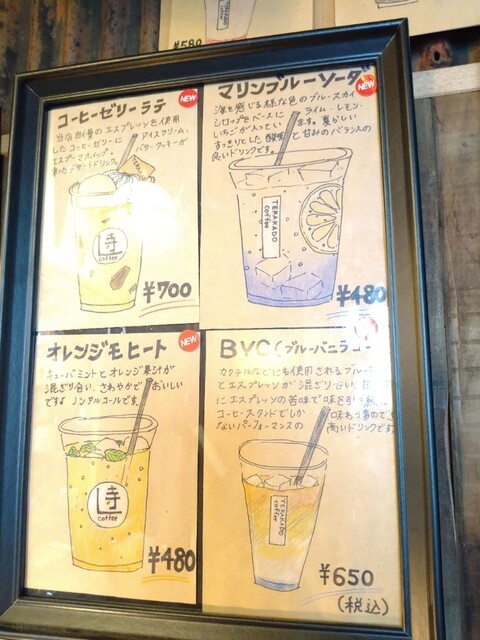 ¥580
コーヒーゼリーラテ
NEW
当店自慢のエスプレッソを使用
したコーヒーゼリーに
アイスクリーム、
エスプーマホイップ、
バタークッキーが
入ったデザートドリンク。
寺
coffee
¥700
マリンブルーソーダ
NEW
海を感じる様な色のブルースカイ
シロップをベースに ライム・レモン・
いちごが入ってい ます。夏らしい
すっきりとした酸味 と甘みのバランスの
良いドリンクです。
TERAKADO
coffee
¥480
オレンジモヒート
NEW
キューバミントとオレンジ果汁が
混ざり合い、さわやかで おいしい
ですよ ノンアルコールです。
寺
coffee
¥480
BVC(ブルーバニラコー
カクテルなどにも使用されるブルー
とエスプレッソが混ざり合い、甘
にエスプレッソの苦味で味を引
コーヒースタンドでしか 味わう事ので
ないパフォーマンスの 高いドリンクです。
TERAKADO
coffee
¥650
(税込)